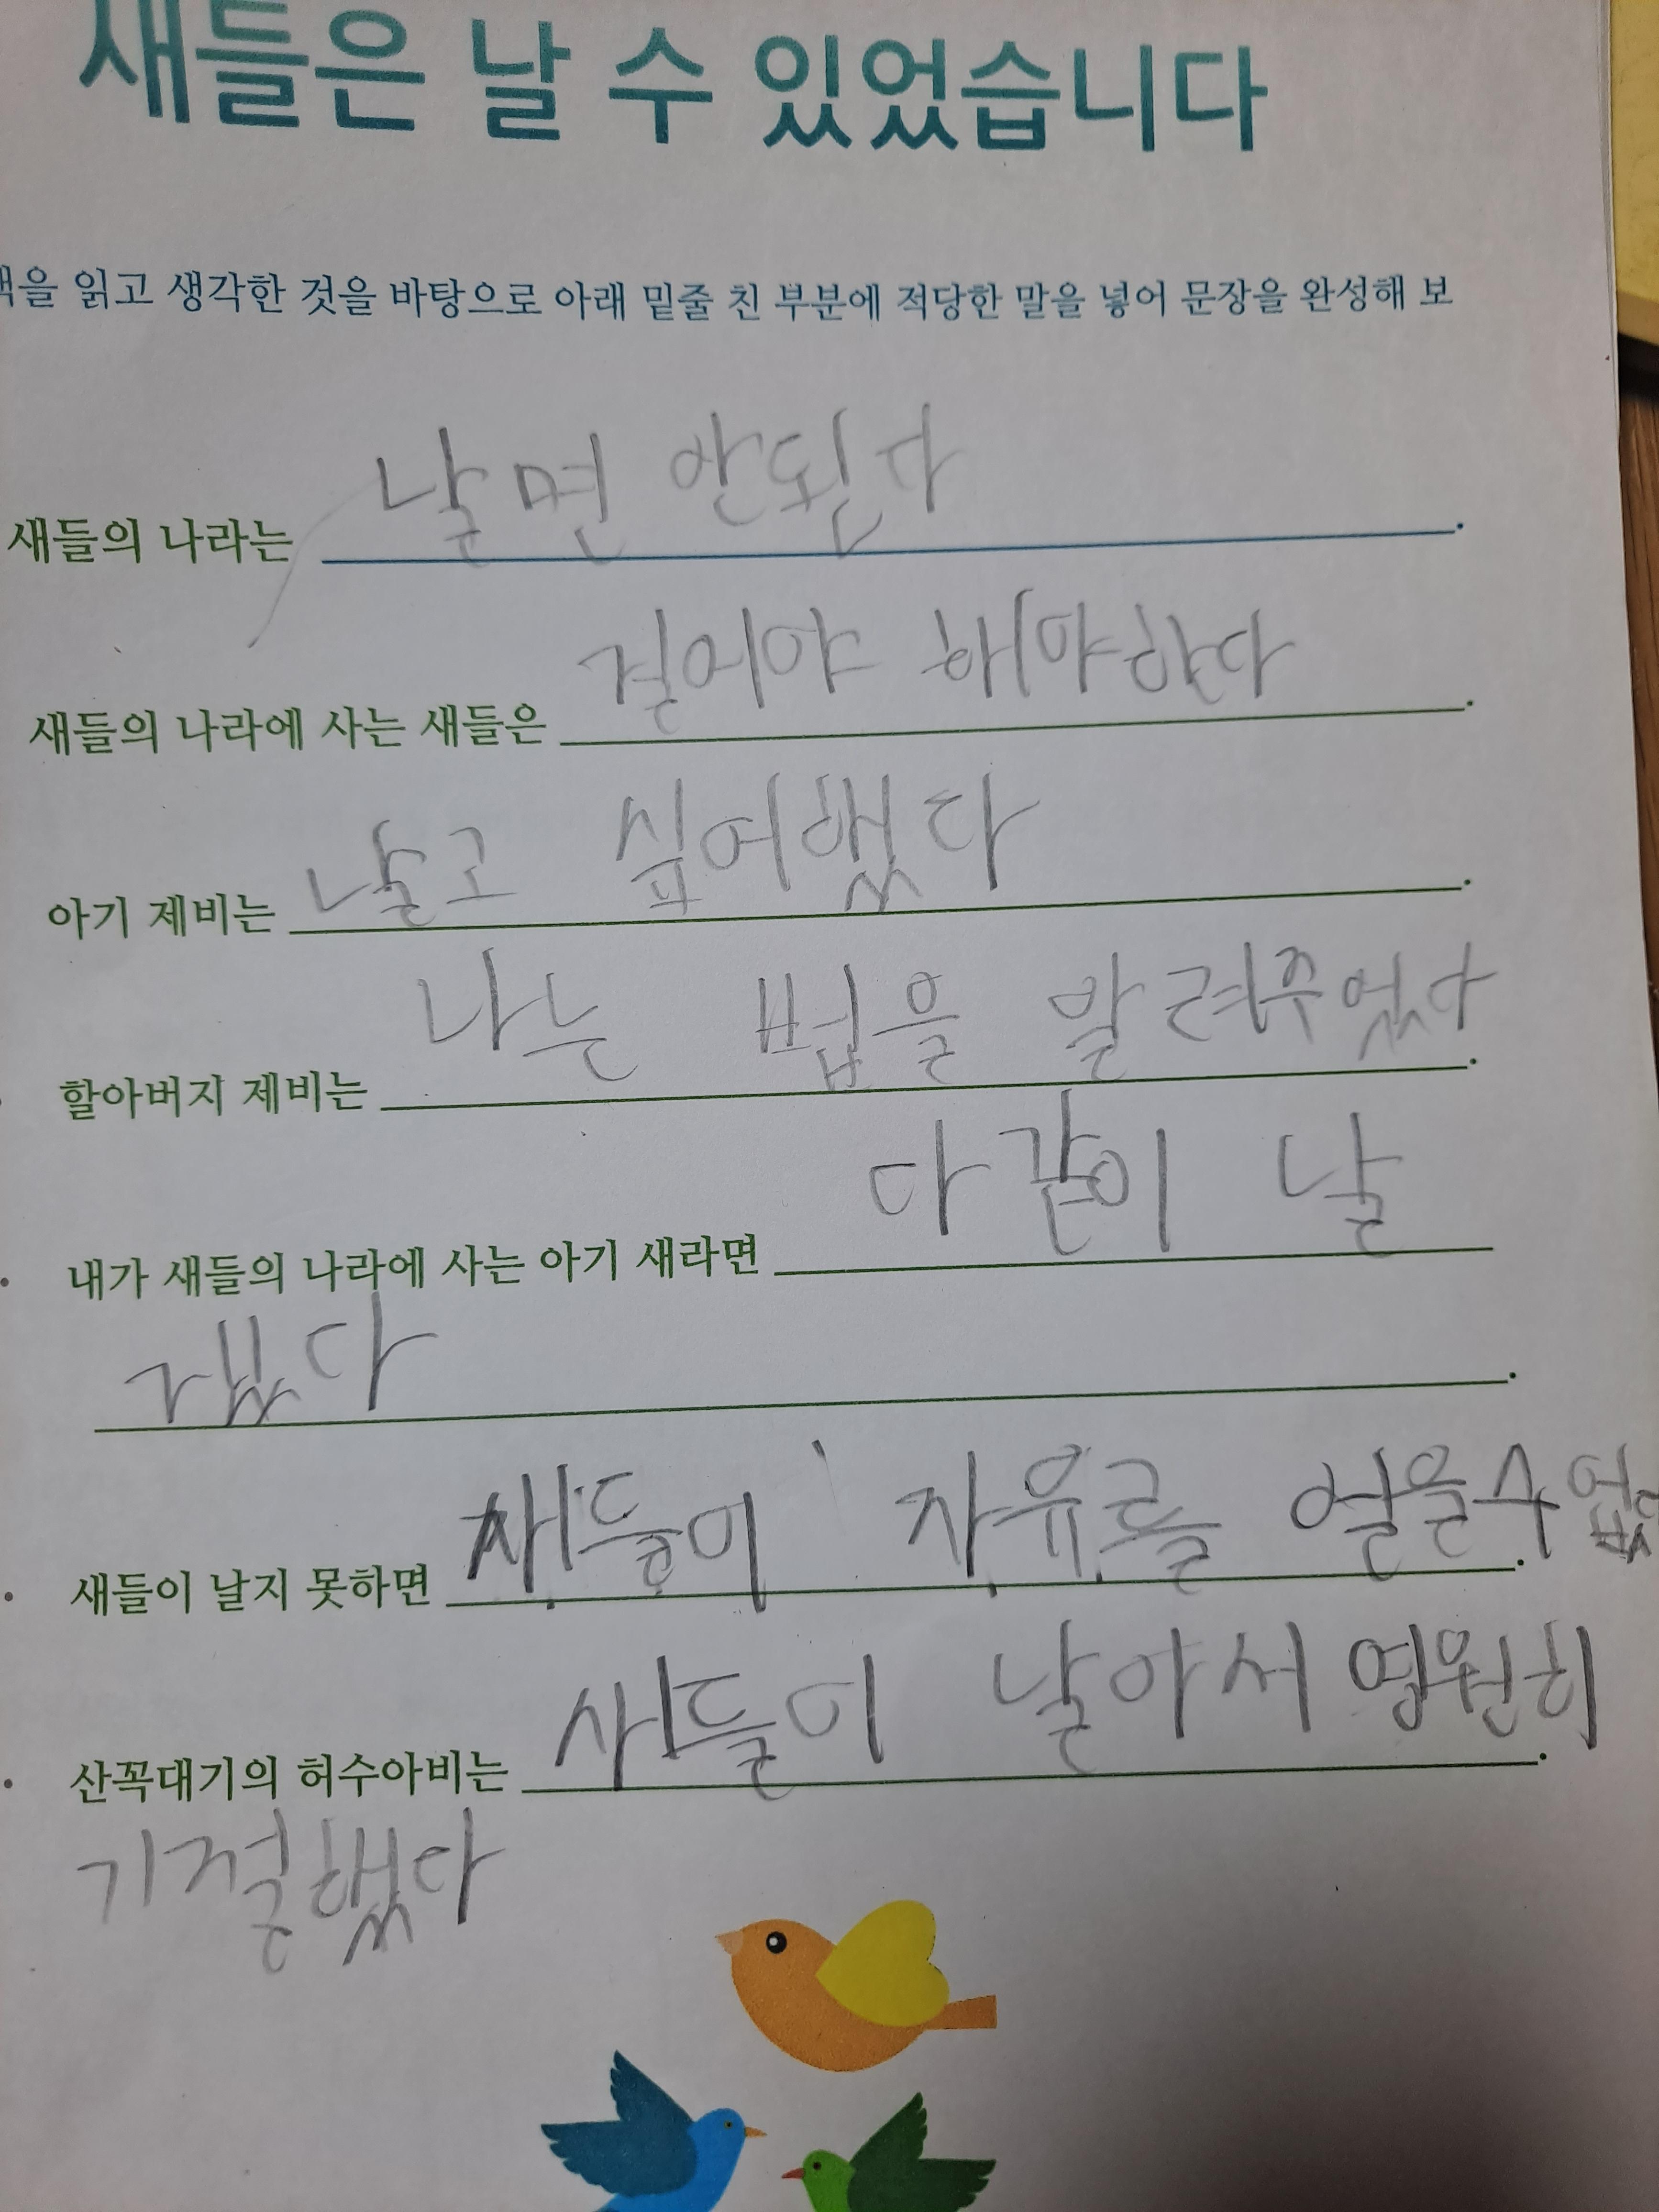 새들은 날 수 있었습니다
책을 읽고 생각한 것을 바탕으로 아래 밑줄 친 부분에 적당한 말을 넣어 문장을 완성해 보
새들의 나라는 날면 안된다.
새들의 나라에 사는 새들은 걸어야 해야한다.
아기 제비는 날고 싶어했다.
할아버지 제비는 나는 법을 알려주었다.
내가 새들의 나라에 사는 아기 새라면 다같이 날
겠다.
새들이 날지 못하면 새들이 자유를 얻을수 없.
산꼭대기의 허수아비는 새들이 날아서 영원히.
기절했다